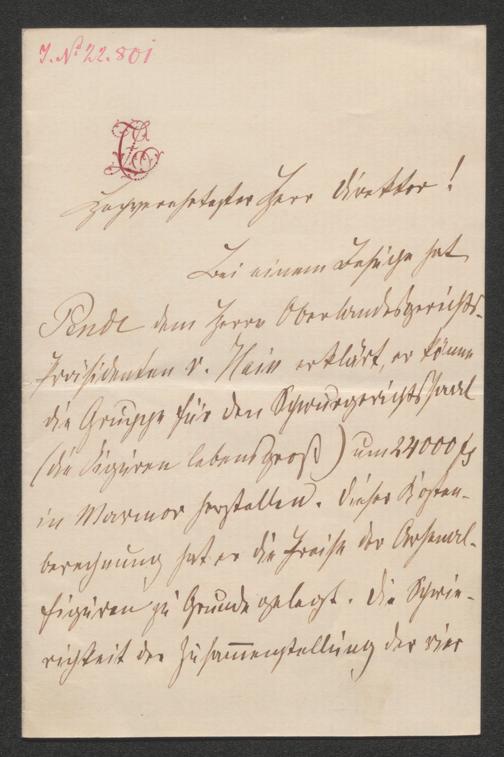 J. Nº 22.801
Hochverehrtester Herr Direktor!
Bei einem Besuche hat
Pendl dem Herrn Oberlandesgerichts-
Präsidenten v. Hein erklärt, er könne
die Gruppe für den Schwurgerichtssaal
(die Figuren lebensgroß) um 24000 fl
in Marmor herstellen. Dieser Kosten-
berechnung hat er die Preise der Arsenal-
figuren zu Grunde gelegt. Die Schwie-
rigkeit der Zusammenstellung der vier